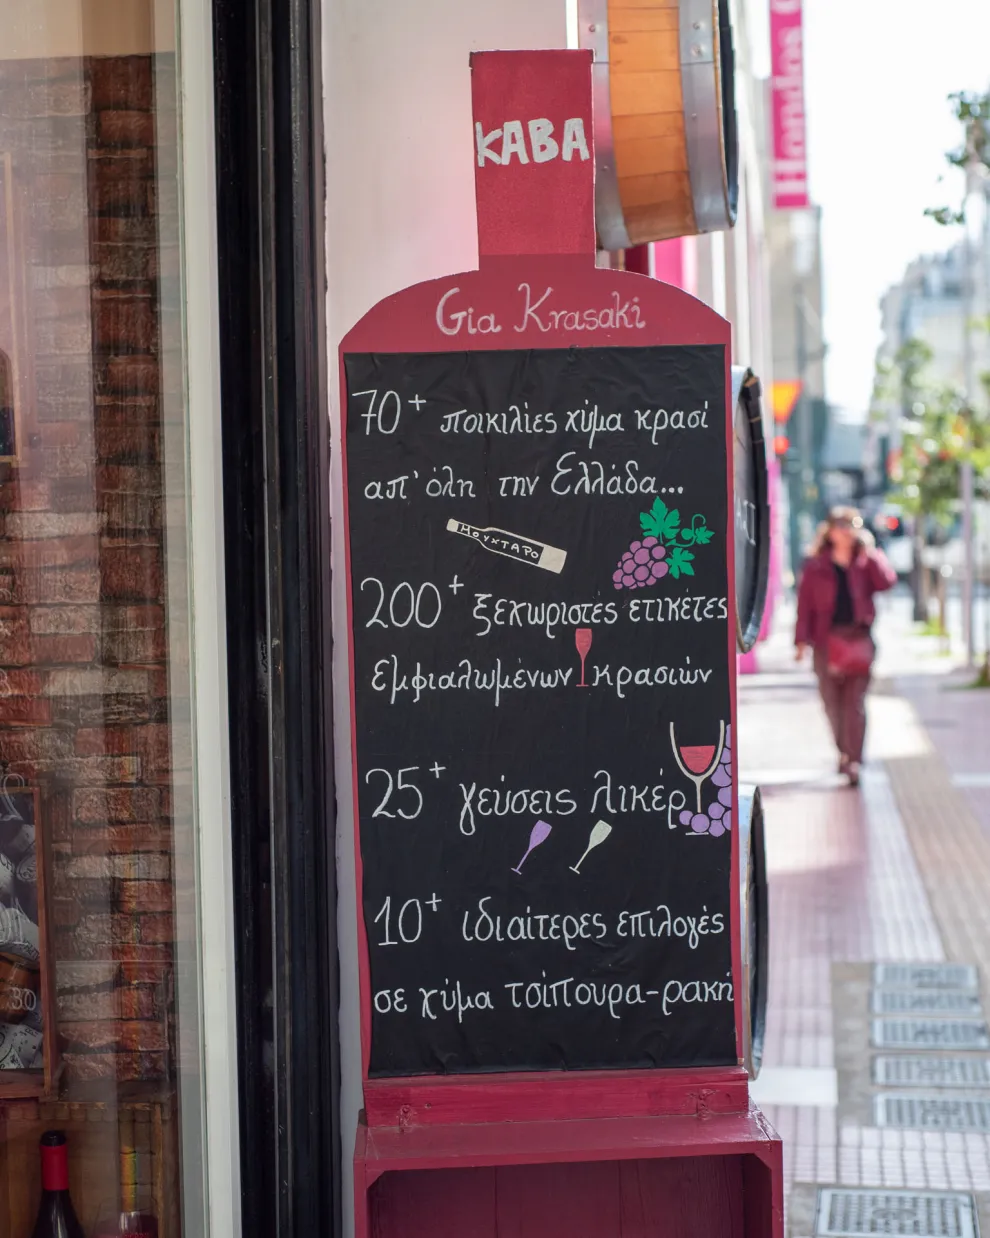 ΚΑΒΑ
Gia Krasaki
70+ ποικιλίες χύμα κρασί
απ' όλη την Ελλάδα...
ΜΟΥΧΤΑΡΟ
200+ ξεχωριστες ετικέτες
εμφιαλωμένων κρασιών
25+ γεύσεις λικέρ
10+ ιδιαίτερες επιλογές
σε χύμα τσίπουρα-ρακή
Hondos